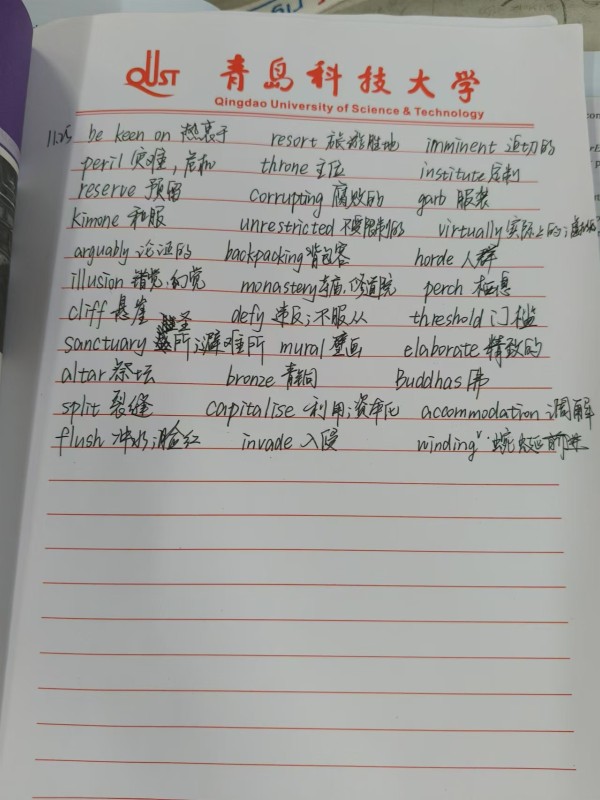 QUST 青岛科技大学
Qingdao University of Science & Technology
11.25 be keen on 热衷于 resort 旅游胜地 imminent 迫切的
peril 灾难，危机 throne 王位 institute 定制
reserve 预留 corrupting 腐败的 garb 服装
kimone 和服 unrestricted 不受限制的 virtually 实际上的；
arguably 论证的 backpacking 背包客 horde 人群
illusion 错觉，幻觉 monastery 寺庙，修道院 perch 栖息
cliff 悬崖 defy 违反；不服从 threshold 门槛
sanctuary 圣所；避难所 mural 壁画 elaborate 精致的
altar 祭坛 bronze 青铜 Buddhas 佛
split 裂缝 capitalise 利用；资本化 accommodation 调解
flush 冲水；脸红 invade 入侵 winding 蜿蜒前进